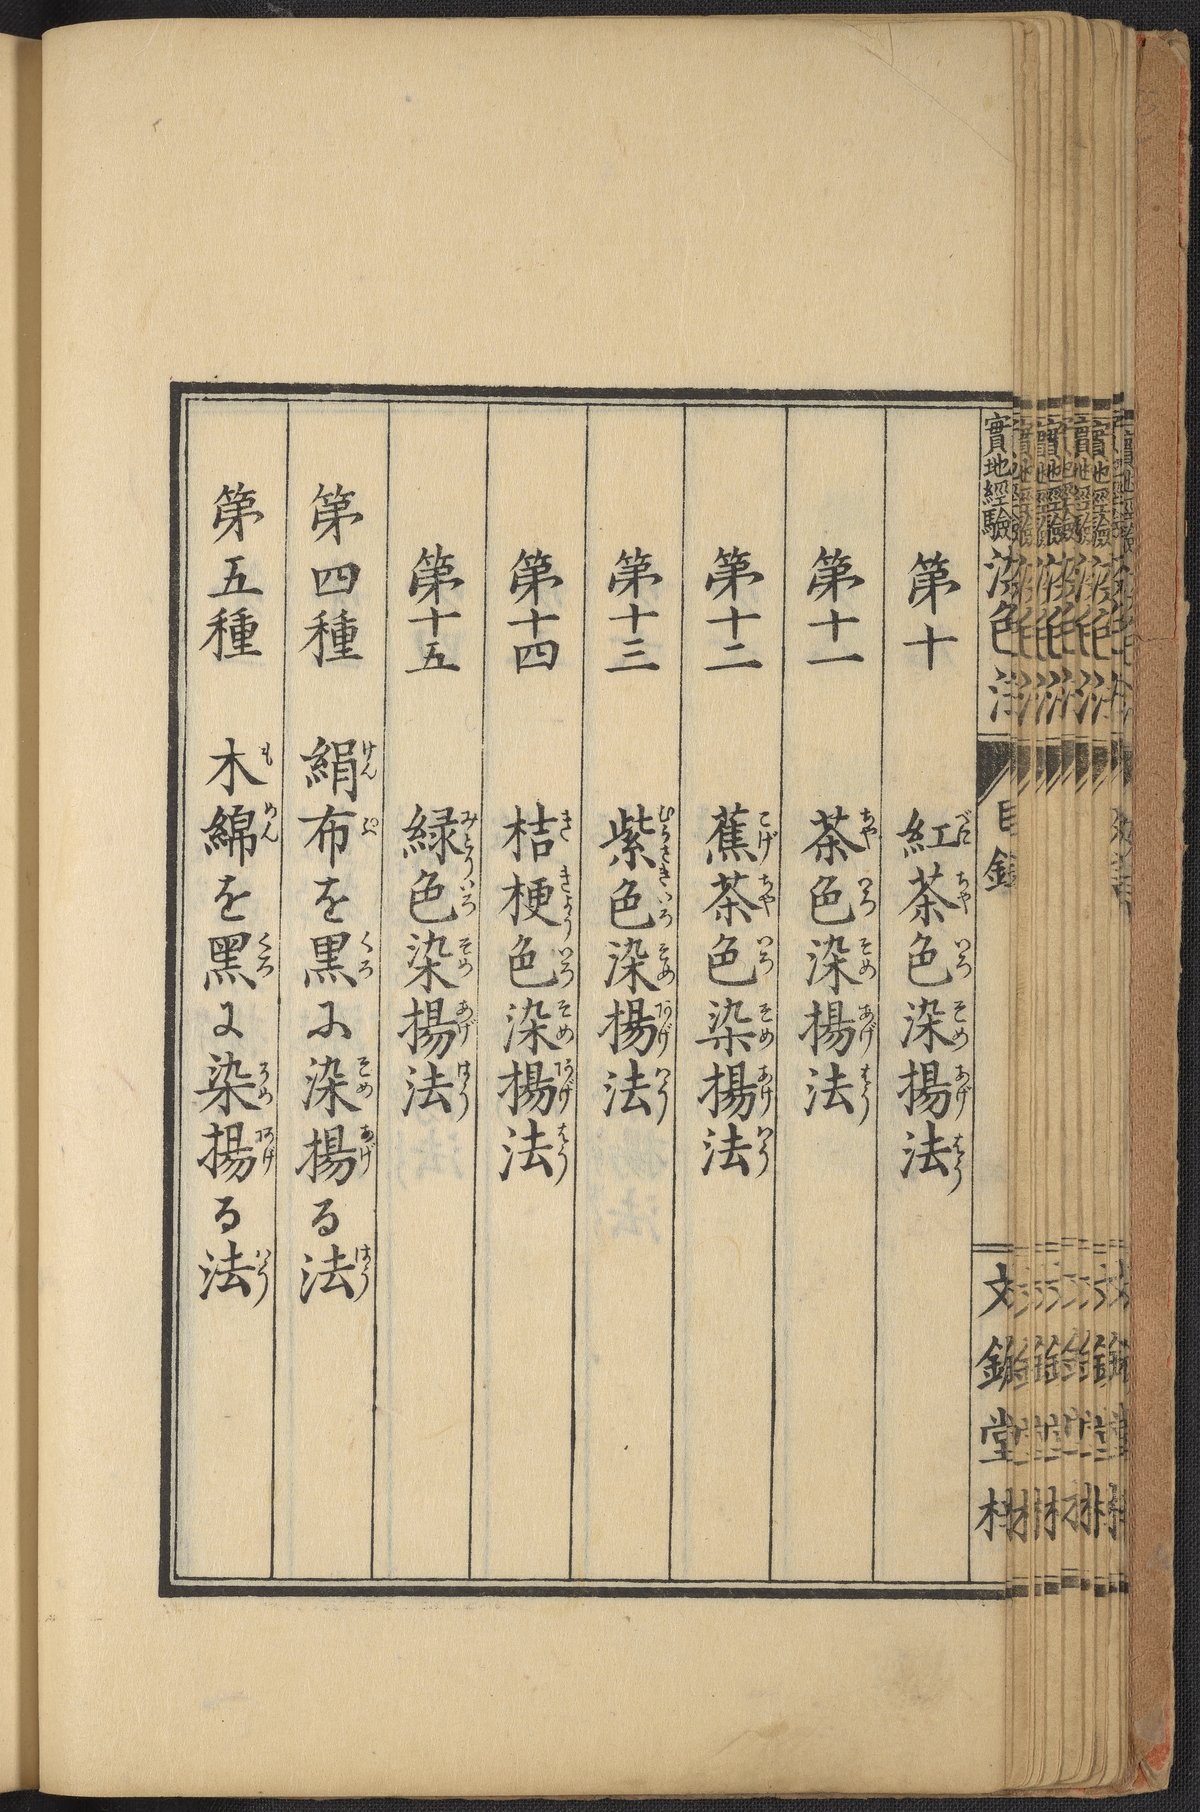 實地經驗 染色法 目録 文錦堂梓
第十 紅茶色染揚法
第十一 茶色染揚法
第十二 蕉茶色染揚法
第十三 紫色染揚法
第十四 桔梗色染揚法
第十五 緑色染揚法
第四種 絹布を黒に染揚る法
第五種 木綿を黒に染揚る法